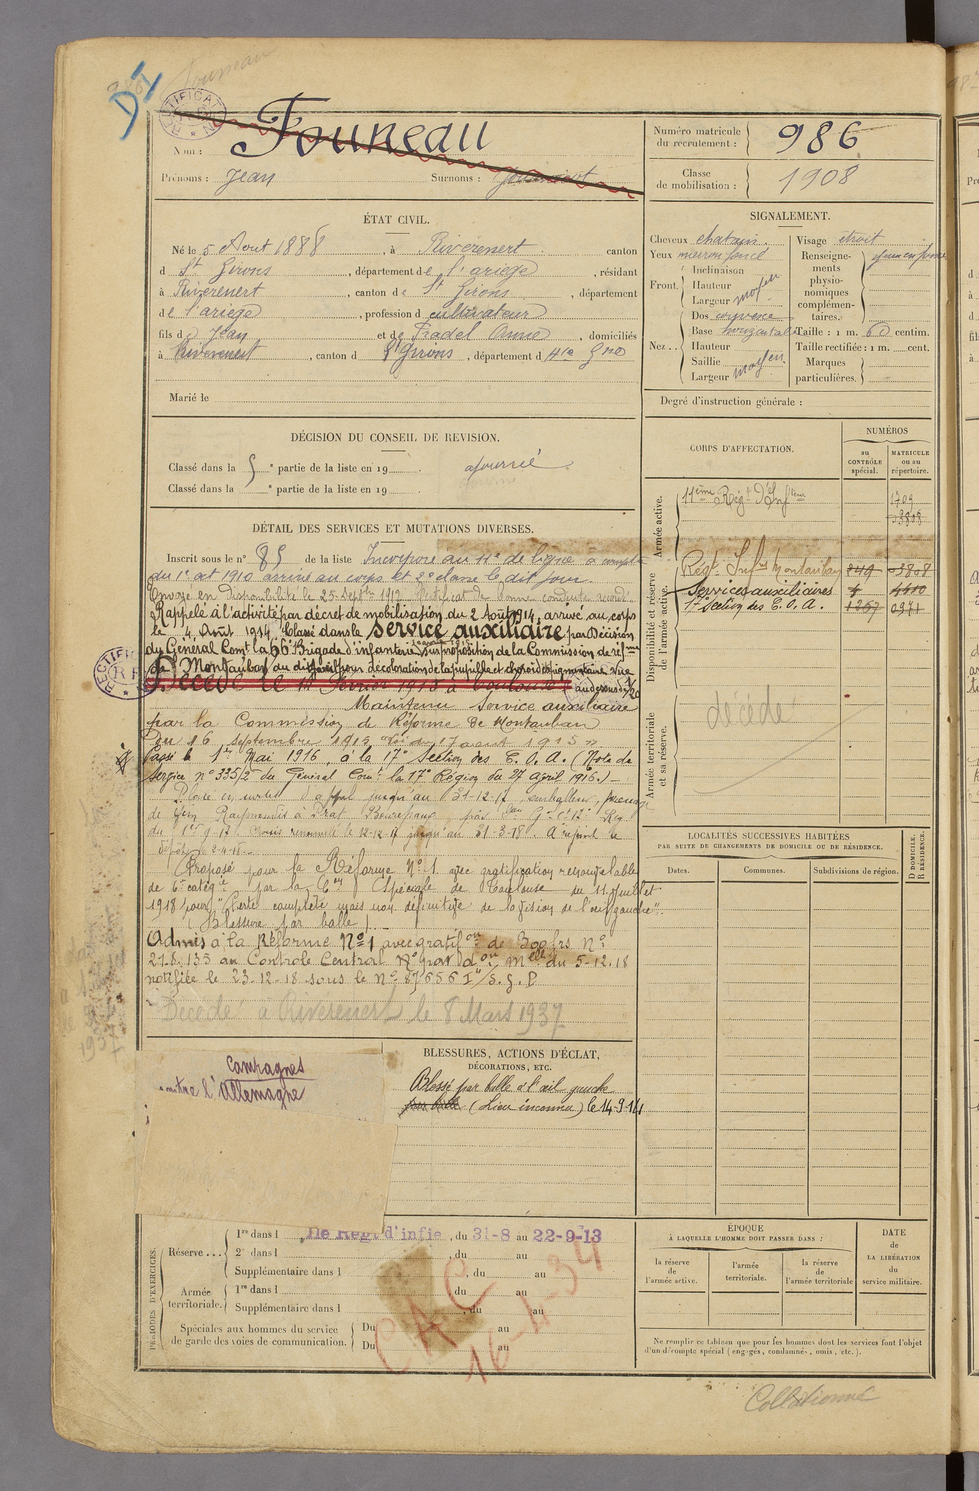 DI
RECTIFICAT
Nom : Founeau
Prénoms : Jean Surnoms :
Numéro matricule du recrutement : 986
Classe de mobilisation : 1908
ÉTAT CIVIL.
Né le 5 Aout 1888, à Riverenert canton
d St Girons, département de l'ariège, résidant
à Riverenert, canton de St Girons, département
de l'ariège, profession d cultivateur
fils de Jean et de Pradel Anne, domiciliés
à Riverenert, canton d St Girons, département d
Marié le
SIGNALEMENT.
Cheveux chatain.
Yeux marron foncé
Front. Inclinaison
Hauteur
Largeur moyen
Nez.. Dos
Base horizontale
Hauteur
Saillie
Largeur moyen
Visage étroit
Renseignements physionomiques complémentaires.
Taille : 1 m. 60 centim.
Taille rectifiée : 1 m. cent.
Marques particulières.
Degré d'instruction générale :
DÉCISION DU CONSEIL DE REVISION.
Classé dans la 5 e partie de la liste en 19 ajourné
Classé dans la e partie de la liste en 19
DÉTAIL DES SERVICES ET MUTATIONS DIVERSES.
Inscrit sous le n° 85 de la liste Incorporé au 11e de ligne à compter
du 1er oct 1910 arrivé au corps et 2e classe le dit jour.
Envoyé en Disponibilité le 25 Septbre 1912 Certificat de bonne conduite accordé
Rappelé à l'activité par décret de mobilisation du 2 Août 1914, arrivé au corps
le 4 Août 1914. Classé dans le Service auxiliaire par Décision
du Général Comt la 66e Brigade d'infanterie sur proposition de la Commission de réfme
de Montauban du dit pour décoloration de la pupille et choroïdite pigmentaire
Décédé le Février 1915 à Toulouse au dessous de 1/20
Maintenu Service auxiliaire
par la Commission de Réforme de Montauban
Du 16 Septembre 1915 Loi du 17 aout 1915
Passé le 1er Mai 1916, à la 17e Section des C. O. A. (Note de
Service n° 335/2 du Général Comt la 17e Région du 27 avril 1916.)
jusqu'au 31-12-17, emballeur,
de Raymond à Prat Bonrepaux, par Gal 17e Rég.
du 1er 9-17. Sursis renouvelé le 12-12-17 jusqu'au 31-3-18. A rejoint le
dépôt
Proposé pour la Réforme N° 1 avec gratification renouvelable
de 6e catégie par la Con Spéciale de Toulouse du 11 Juillet
1918 pour "Perte complète mais non définitive de la vision de l'œil gauche".
(Blessure par balle)
Admis à la Réforme N° 1 avec gratifon de 300 frs N°
278.135 au Contrôle Central Don Melle du 5-12-18
notifiée le 23-12-18 sous le N° 87656 I"/S.G.P.
Décédé à Riverenert le 8 Mars 1937
CORPS D'AFFECTATION.
NUMÉROS
au CONTRÔLE spécial.
MATRICULE ou au répertoire.
Armée active.
11ème Régt d'Infterie 1709
3808
Disponibilité et réserve de l'armée active.
Régt Infie Montauban 849 3808
Services auxiliaires
17e Section des C. O. A. 1267 0971
Armée territoriale et sa réserve.
décédé
LOCALITÉS SUCCESSIVES HABITÉES
PAR SUITE DE CHANGEMENTS DE DOMICILE OU DE RÉSIDENCE.
Dates. Communes. Subdivisions de région.
D DOMICILE. R RÉSIDENCE.
Campagnes
contre l'Allemagne
BLESSURES, ACTIONS D'ÉCLAT,
DÉCORATIONS, ETC.
Blessé par balle à l'œil gauche
par balle (Lieu inconnu) le 14-9-14
PÉRIODES D'EXERCICES.
Réserve... 1re dans l 11e Régt d'infie, du 31-8 au 22-9-13
2e dans l , du au
Supplémentaire dans l , du au
Armée territoriale. 1re dans l , du au
Supplémentaire dans l , du au
Spéciales aux hommes du service de garde des voies de communication. Du au
Du au
CAC
16-4-34
ÉPOQUE
À LAQUELLE L'HOMME DOIT PASSER DANS :
la réserve de l'armée active.
l'armée territoriale.
la réserve de l'armée territoriale
DATE de LA LIBÉRATION du service militaire.
Ne remplir ce tableau que pour les hommes dont les services font l'objet
d'un décompte spécial (engagés, condamnés, omis, etc.).
Collationné